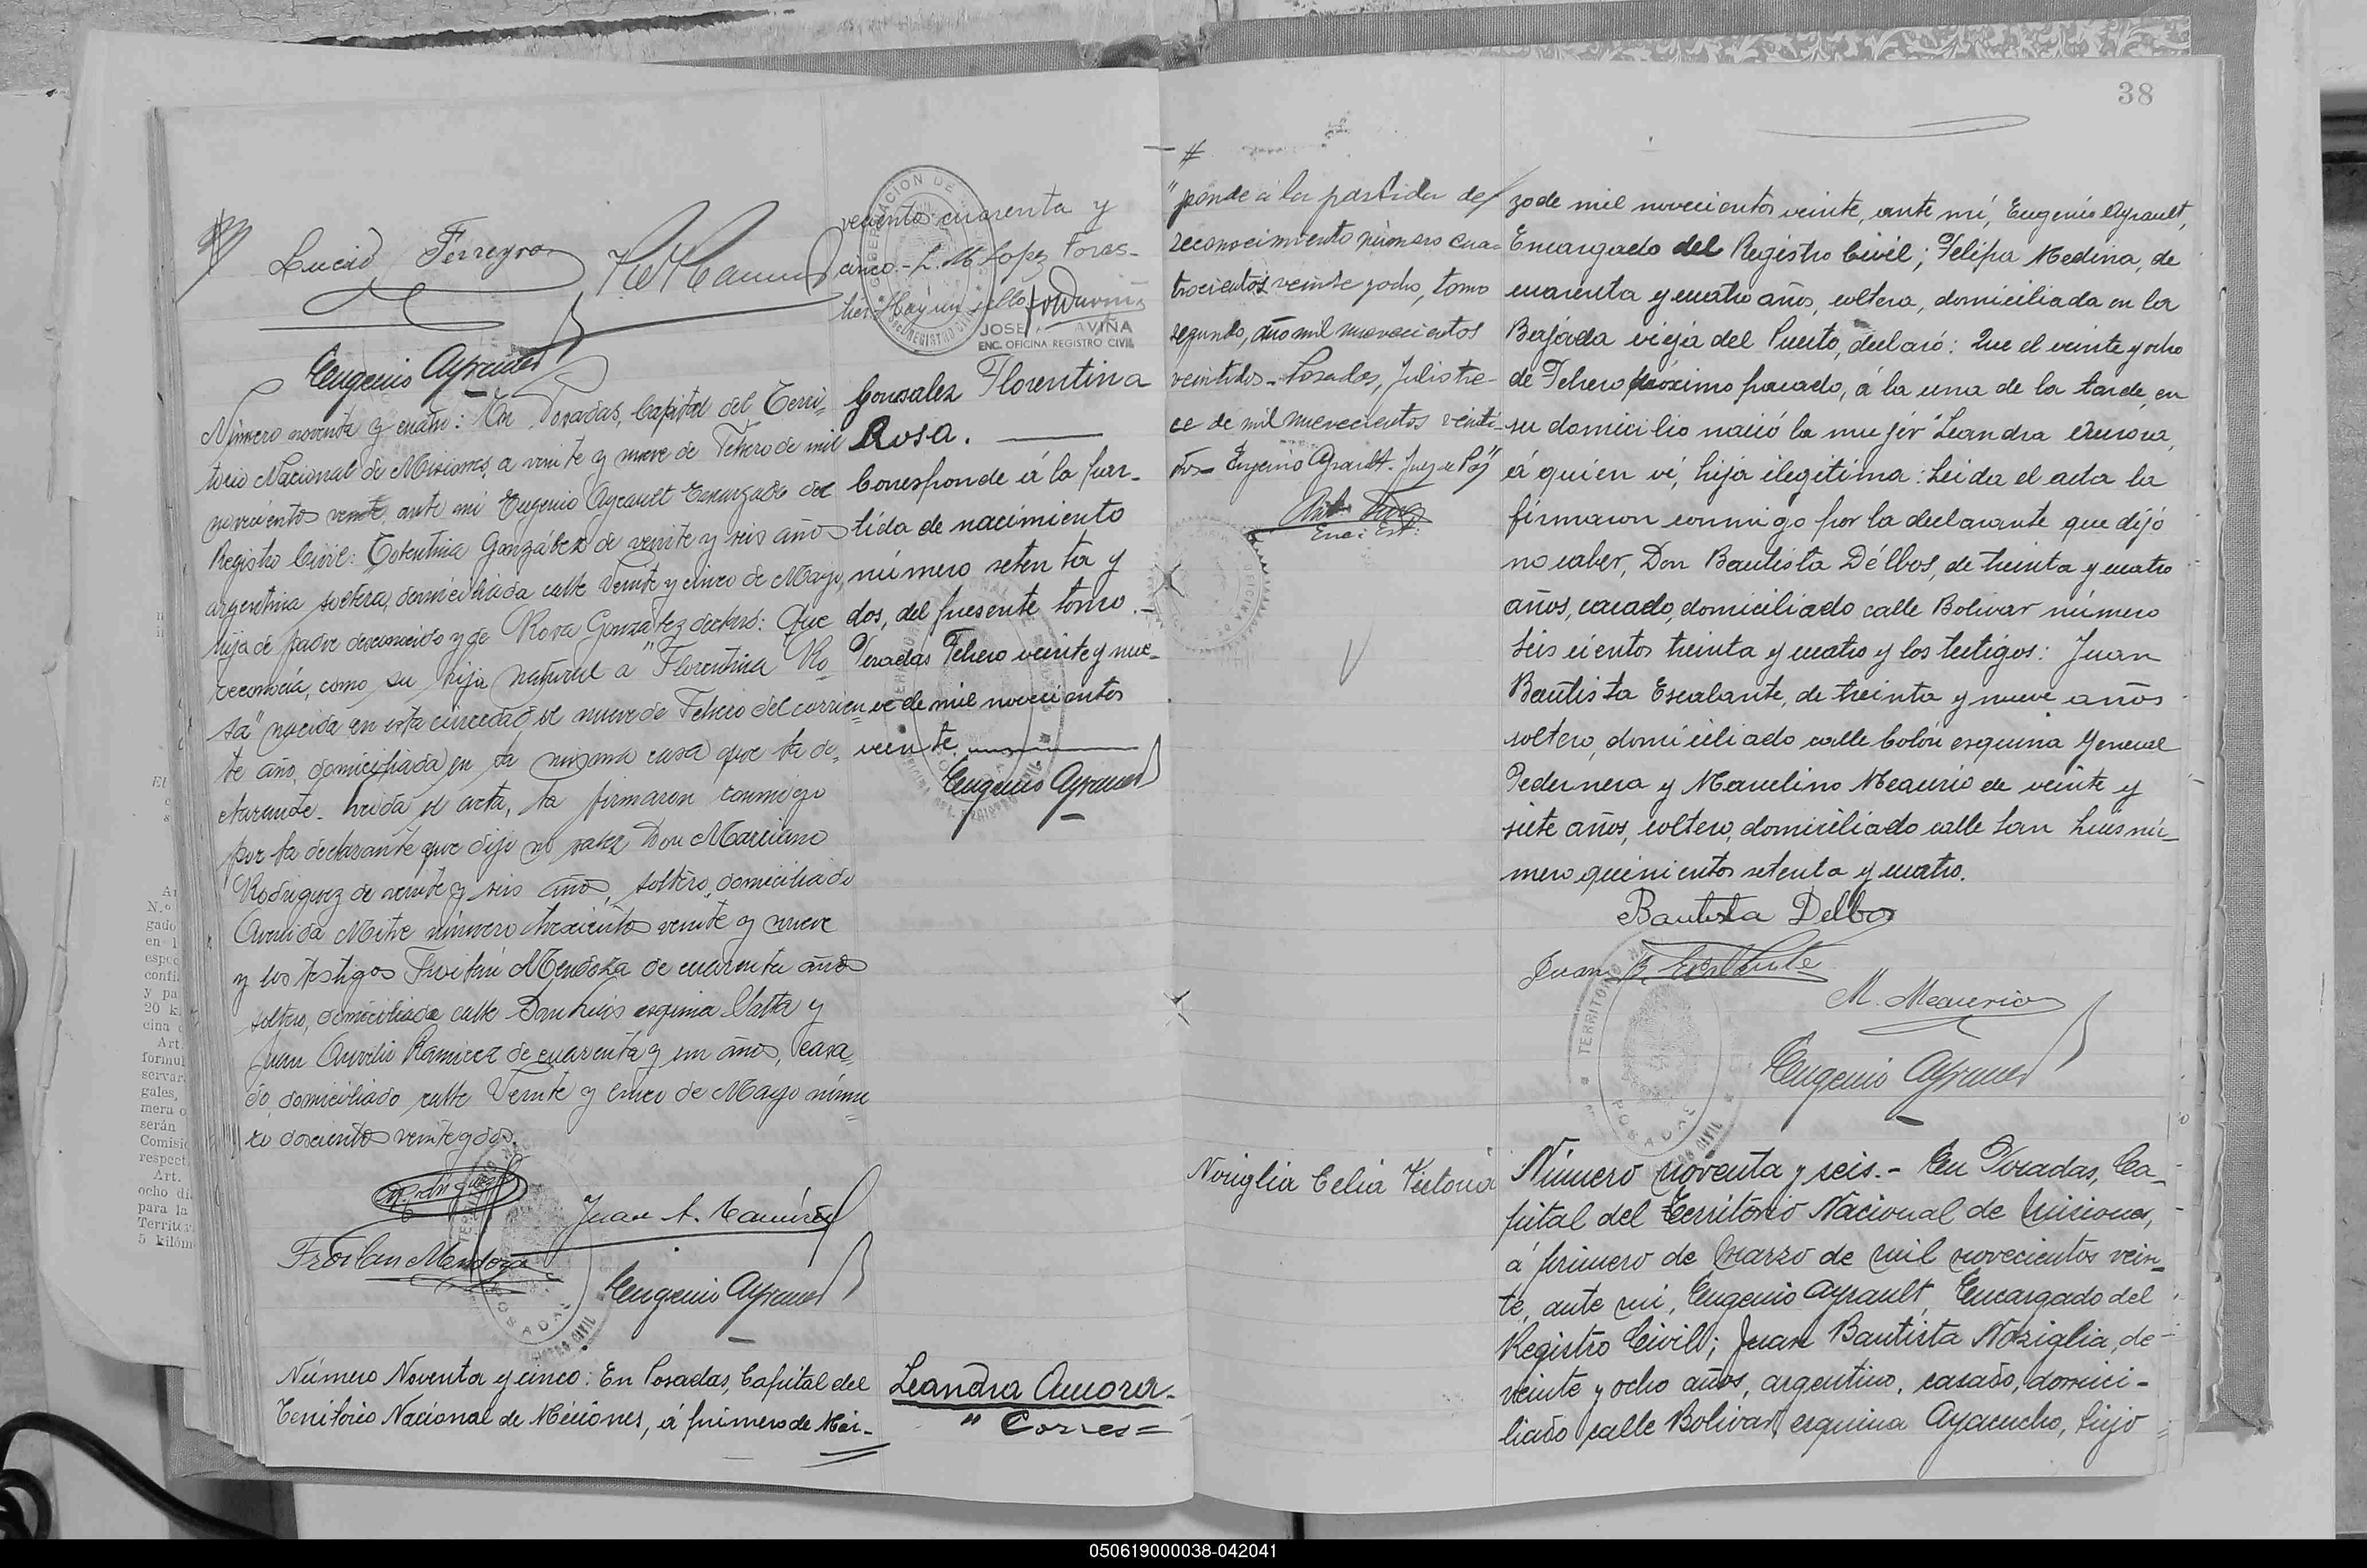 Lucio Ferreyro
Eugenio Ayrault
Número noventa y cuatro: En Posadas, Capital del Terri-
torio Nacional de Misiones, a veinte y nueve de Febrero de mil
novecientos veinte, ante mi Eugenio Ayrault Encargado del
Registro Civil: Gonzáles de veinte y seis años
argentina soltera, domiciliada calle Veinte y cinco de Mayo,
hija de padre desconocido y de Rosa Gonzalez declaró: Que
reconocía, como su hija natural a "Florentina Ro
sa" nacida en esta ciudad el nueve de Febrero del corrien
te año, domiciliada en la misma casa que la de-
clarante. Leida el acta, la firmaron conmigo
por la declarante que dijo no saber Don Marciano
Rodriguez de veinte y seis años, soltero, domiciliado
Avenida Mitre número trescientos veinte y nueve
y los testigos Froilán Mendoza de cuarenta años
soltero, domiciliado calle San Luis esquina Salta y
Juan Aurelio Ramirez de cuarenta y un años, casa-
do, domiciliado calle Veinte y cinco de Mayo núme
ro doscientos veinte y dos.
Juan A. Ramírez
Froilan Mendoza
Eugenio Ayrault
Número Noventa y cinco: En Posadas, Capital del
Territorio Nacional de Misiones, á primero de Mar-
vecientos cuarenta y
cinco.- L. M. Lopez Fores-
tier. Hay un sello
JOSE AVIÑA
ENC. OFICINA REGISTRO CIVIL
Gonzalez Florentina
Rosa.
Corresponde á la par-
tida de nacimiento
número setenta y
dos, del presente tomo.-
Posadas Febrero veinte y nue-
ve de mil novecientos
veinte.
Eugenio Ayrault
Leandra Aurora.
" Corres=
38
#
"ponde á la partida de
reconocimiento número cua-
trocientos veinte y ocho, tomo
segundo, año mil novecientos
veintidos.- Posadas, Julio tre-
ce de mil novecientos veinti-
dos.- Eugenio Ayrault. Juez de Paz"
zo de mil novecientos veinte, ante mí, Eugenio Ayrault,
Encargado del Registro Civil; Felipa Medina, de
cuarenta y cuatro años, soltera, domiciliada en la
Bajada vieja del Puerto, declaró: Que el veinte y ocho
de Febrero próximo pasado, á la una de la tarde, en
su domicilio nació la mujer "Leandra Aurora,
á quien ví, hija ilegítima: Leida el acta la
firmaron conmigo por la declarante que dijo
no saber, Don Bautista Délbos, de treinta y cuatro
años, casado, domiciliado calle Bolivar número
seis cientos treinta y cuatro y los testigos: Juan
Bautista Escalante, de treinta y nueve años
soltero, domiciliado calle Colón esquina General
Pedernera y Marcelino Meaurio de veinte y
siete años, soltero, domiciliado calle San Luis nú-
mero quinientos setenta y cuatro.
Bautista Delbos
Juan B. Escalante
M. Meaurio
Eugenio Ayrault
Noziglia Celia Victoria
Número noventa y seis.- En Posadas, Ca-
pital del Territorio Nacional de Misiones,
á primero de Marzo de mil novecientos vein-
te, ante mi, Eugenio Ayrault, Encargado del
Registro Civil; Juan Bautista Noziglia, de
veinte y ocho años, argentino, casado, domici-
liado calle Bolivar, esquina Ayacucho, hijo
050619000038-042041